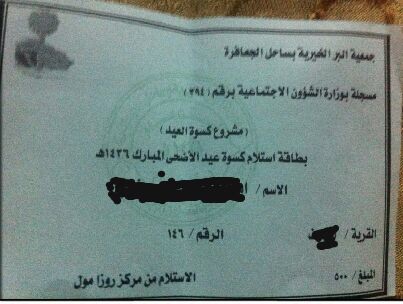 جمعية البر الخيرية بساحل الجعافرة
مسجلة بوزارة الشؤون الاجتماعية برقم (٣٩٤)
(مشروع كسوة العيد)
بطاقة استلام كسوة عيد الأضحى المبارك ١٤٣٦هـ
الاسم /
القرية / الرقم / ١٤٦
المبلغ / ٥٠٠ الاستلام من مركز روزا مول